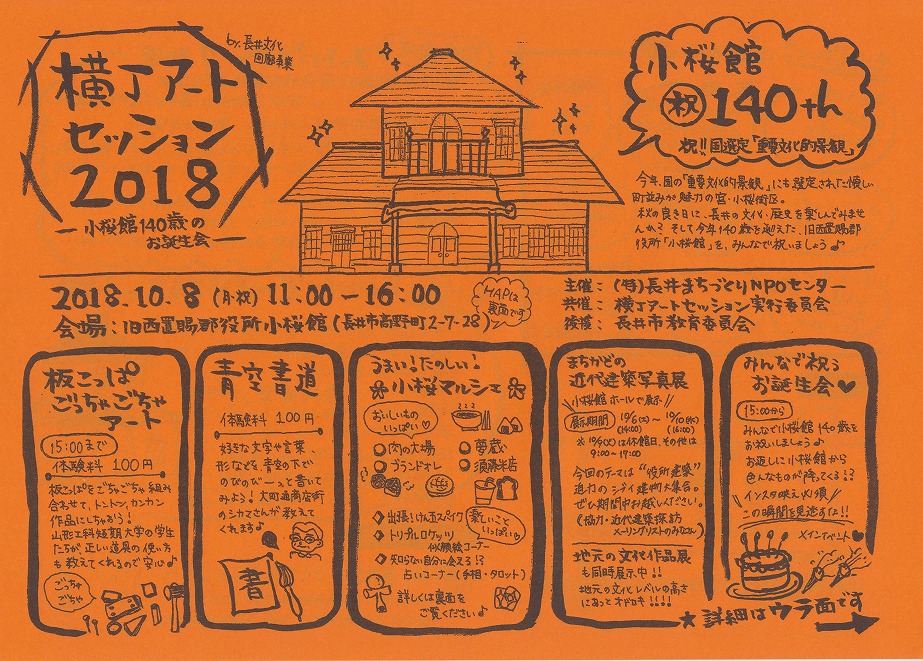 横丁アート
セッション
2018
by. 長井文化
回廊事業
―小桜館140歳の
お誕生会―
小桜館
祝 140th
祝!!国選定「重要文化的景観」
今年、国の「重要文化的景観」にも選定された懐しい
町並みが魅力の宮・小桜街区。
秋の良き日に、長井の文化・歴史を楽しんでみませ
んか？そして今年140歳を迎えた、旧西置賜郡
役所「小桜館」を、みんなで祝いましょう♪
2018.10.8(月・祝) 11:00-16:00
会場：旧西置賜郡役所小桜館(長井市高野町2-7-28)
MAPは
裏面です
主催：(特)長井まちづくりNPOセンター
共催：横丁アートセッション実行委員会
後援：長井市教育委員会
板こっぱ
ごっちゃごちゃ
アート
15:00まで
体験料 100円
板こっぱをごちゃごちゃ組み
合わせて、トントン、カンカン
作品にしちゃおう！
山形工科短期大学の学生
たちが、正しい道具の使い方
も教えてくれるので安心♪
ごっちゃ
ごちゃ
青空書道
体験料 100円
好きな文字や言葉、
形などを、青空の下で
のびのびーっと書いて
みよう！大町通商店街
のシカマさんが教えて
くれます♪
書
うまい！たのしい！
小桜マルシェ
おいしいもの
いっぱい♡
○肉の大場 ○夢蔵
○ブランドォレ ○須藤餅店
◇出張！けん玉スパイク
楽しいこと
いっぱい♡
◇トリプルロケッツ
似顔絵コーナー
◇知らない自分に会える!?
占いコーナー(手相・タロット)
詳しくは裏面を
ご覧ください♪
まちかどの
近代建築写真展
小桜館ホールで展示
展示期間 10/6(土)～10/10(水)
(14:00) (16:00)
※10/9(火)は休館日、その他は
9:00～17:00
今回のテーマは"役所建築"
迫力のシブイ建物大集合。
ぜひ期間中お越しください。
(協力・近代建築探訪
メーリングリストのみなさん)
地元の文化作品展
も同時展示中!!
地元の文化レベルの高さ
にあっとオドロキ!!!!
みんなで祝う
お誕生会♥
15:00から
みんなで小桜館140歳を
お祝いしましょう♪
お返しに小桜館から
色んなものが降ってくる!?
インスタ映え必須
この瞬間を見逃すな!!
メインイベント♥
★詳細はウラ面です